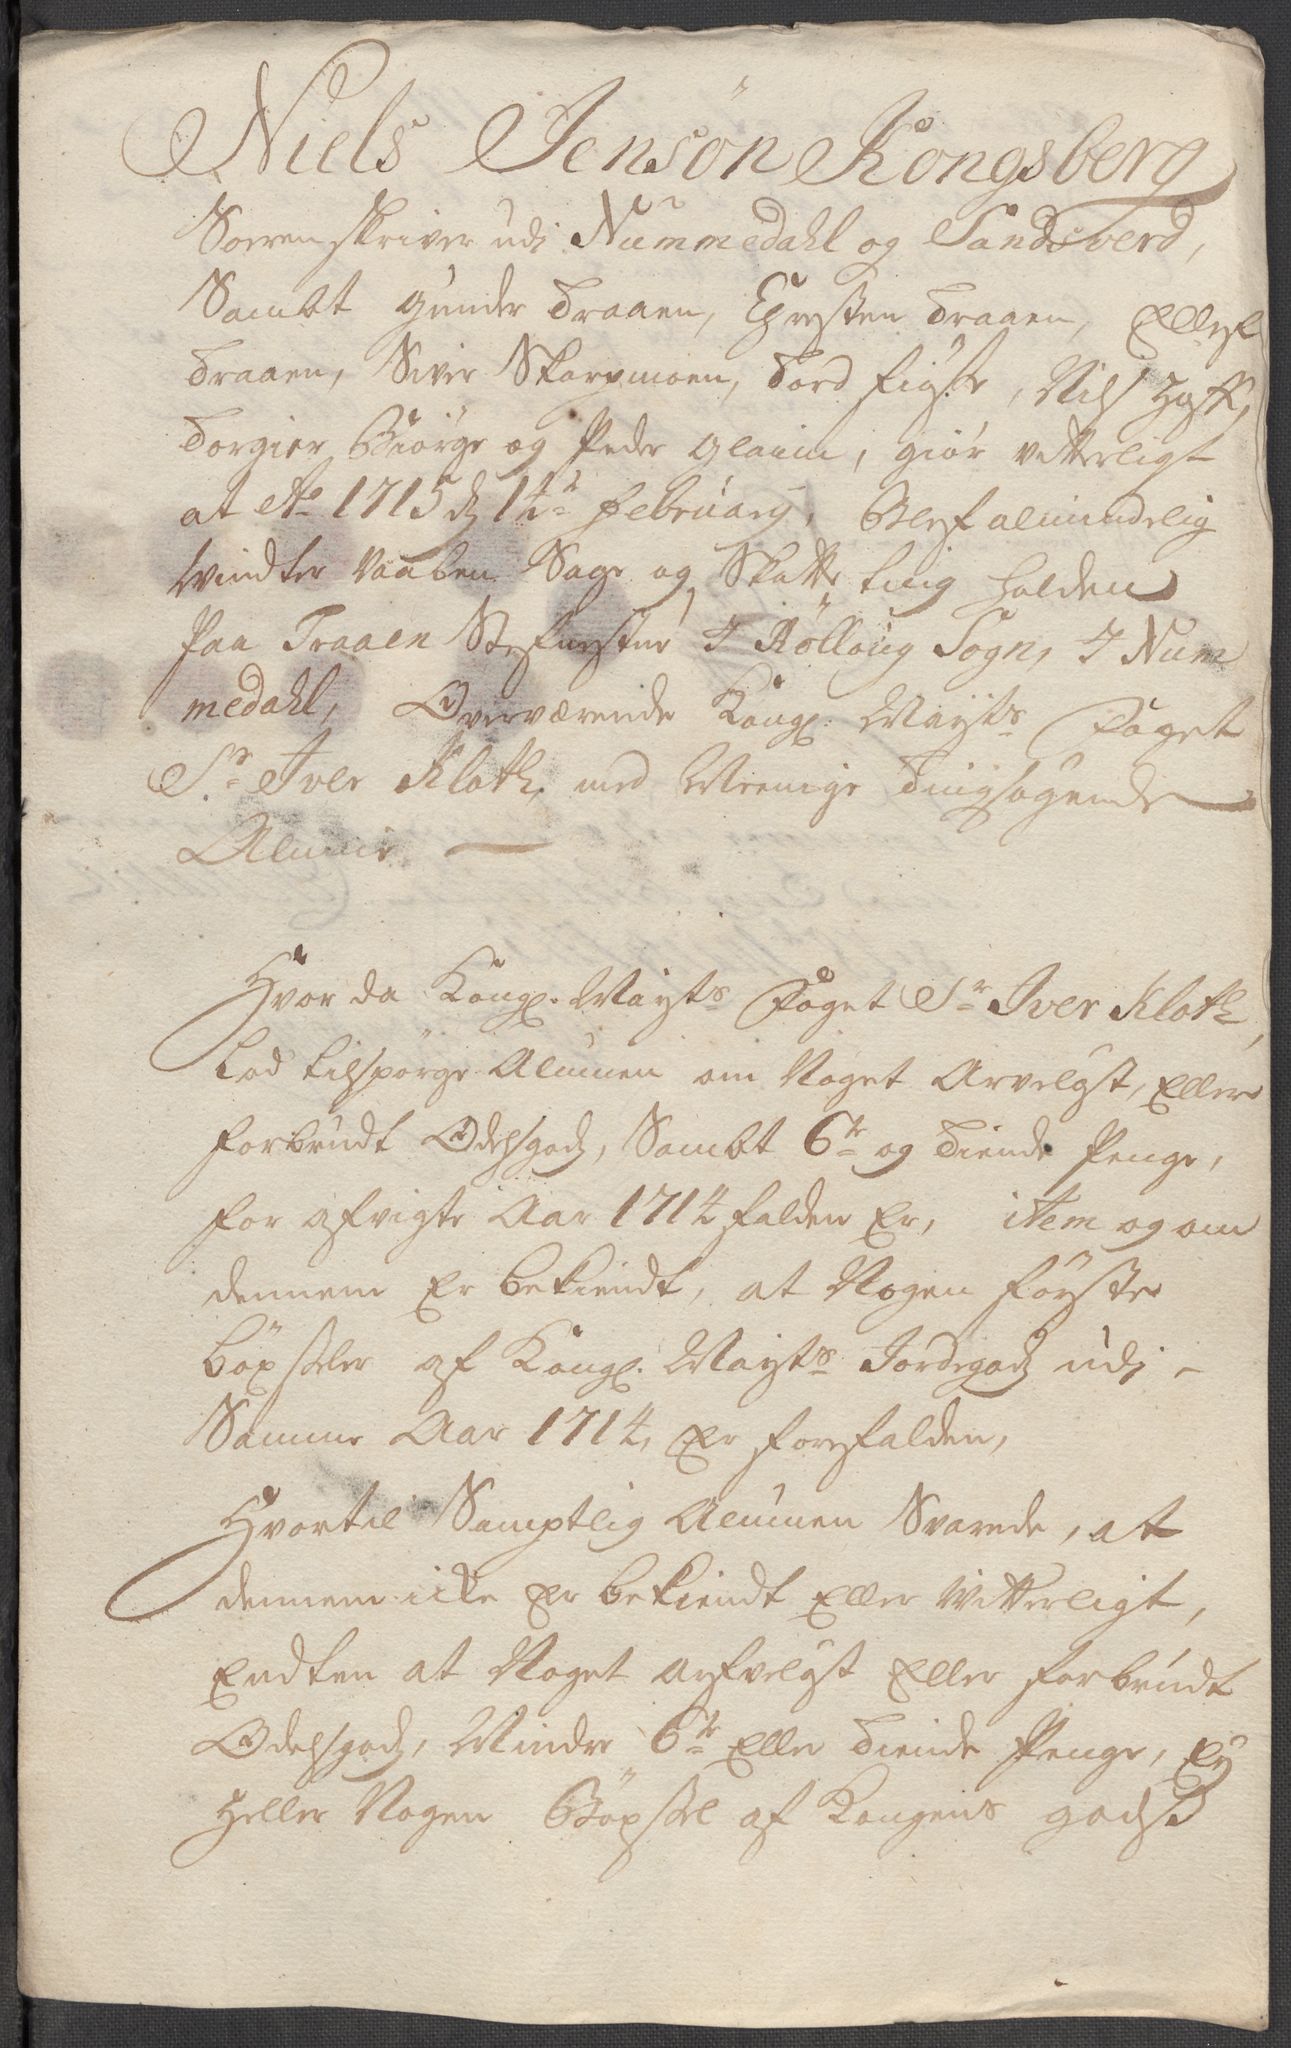 Niels Jensøn Kongsberg
Sorenskriver udj Nummedahl og Sandsverd,
Sambt Gunder Traaen, Christen Traaen, Ellef
Traaen, Siver Skarpmoen, Tord
Torgier Biørge og Peder Glaim, giør vitterligt
at Ao 1715 d 14de February, Blef almindelig
Windter Vaaben Sage og Skatte ting holden
paa Traaen Stefnestue I Rølloug Sogn, I Num
medahl, Overværende Kongl: Mayts Foget
Sr Iver Kloth, med Meenige Tingsøgende
Almue
Hvor da Kongl. Mayts Foget Sr Iver Kloth,
Lod tilspørge Almuen om Noget Arveløst, Eller
forbrudt Odelsgods, Sambt 6te og Tiende Penge,
for afvigte Aar 1714 falden Er, item og om
dennem Er bekiendt, at Nogen første
bøxseler af Kongl. Mayts Jordegods udj
Samme Aar 1714, Er forefalden,
Hvortil Samptlig Almuen Svarede, at
dennem icke Er bekiendt Eller Vitterligt,
Endten at Noget arfveløst Eller forbrudt
Odelsgods, Mindre 6te Eller Tiende Penge, Ey
heller Nogen Bøxsel af Kongens gods